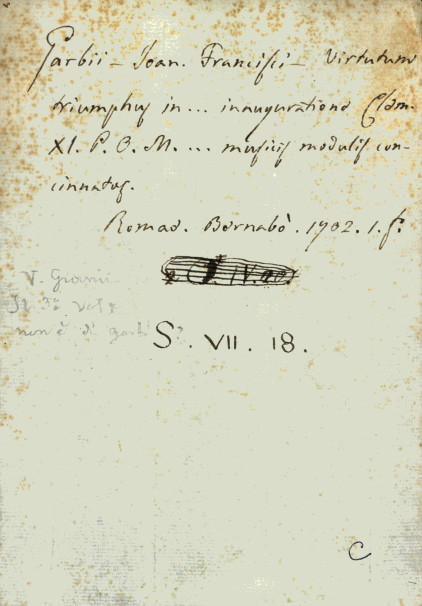 Garbii - Joan. Francisci - Virtutum
triumphus in ... inauguratione Clem.
XI. P. O. M. ... musicis modulis con-
cinnatus.
Romae. Bernabò. 1702. 1. f.
V. Gravii
non è di
S. VII. 18.
C